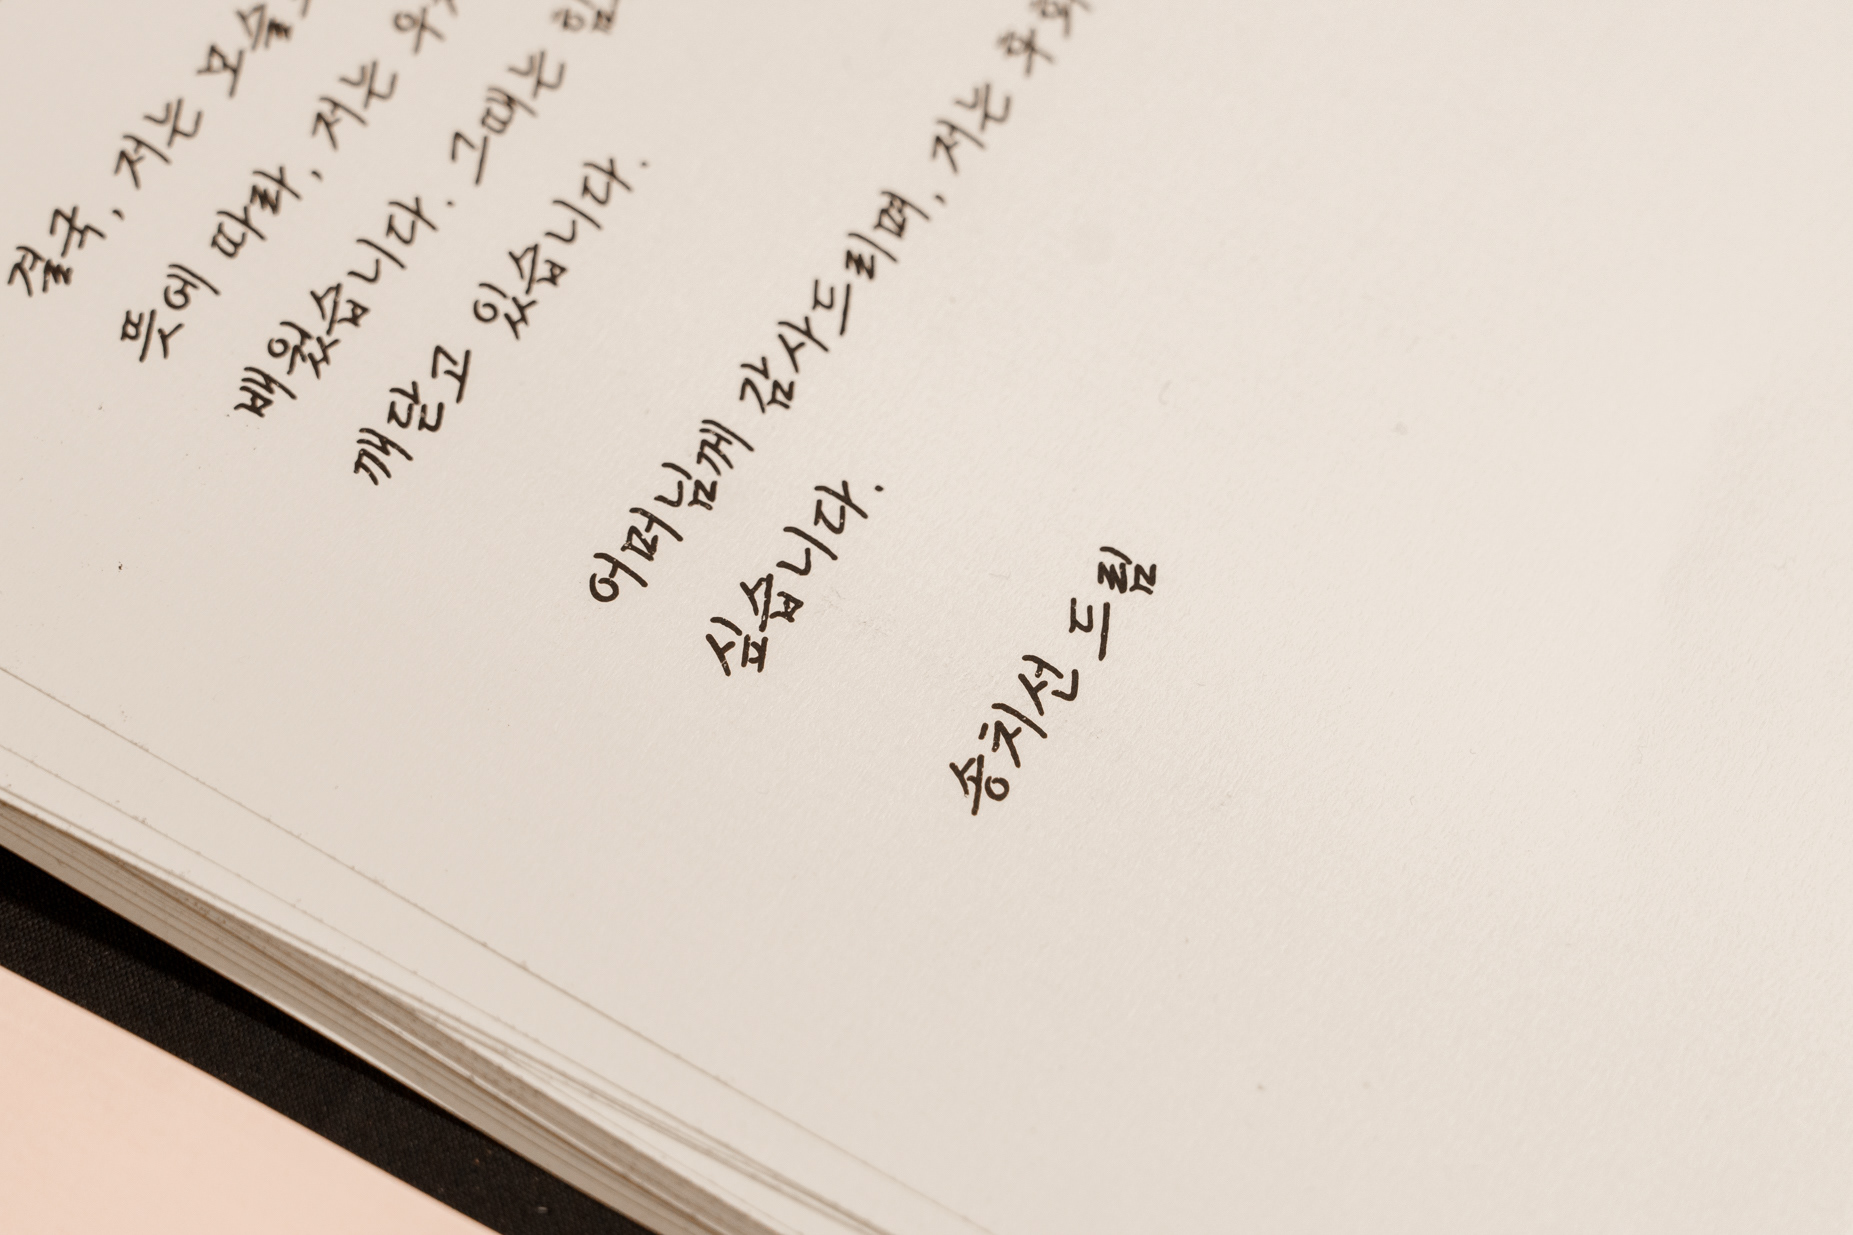 결국, 저는 모슬
뜻에 따라, 저는
배웠습니다. 그때는 힘
깨닫고 있습니다.
어머님께 감사드리며, 저는 우회
싶습니다.
송치선 드림